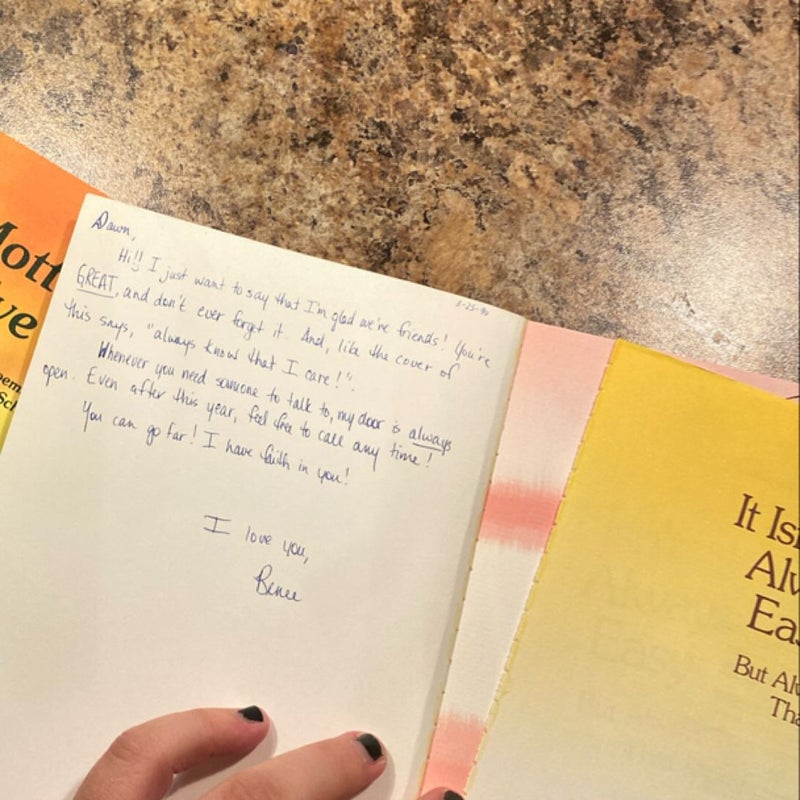 Dawn,
Hi!! I just want to say that I'm glad we're friends! You're
GREAT, and don't ever forget it. And, like the cover of
this says, "always know that I care!".
Whenever you need someone to talk to, my door is always
open. Even after this year, feel free to call any time!
You can go far! I have faith in you!
I love you,
Renee
3-25-90
It Is
Al
Eas
But Al
Tha